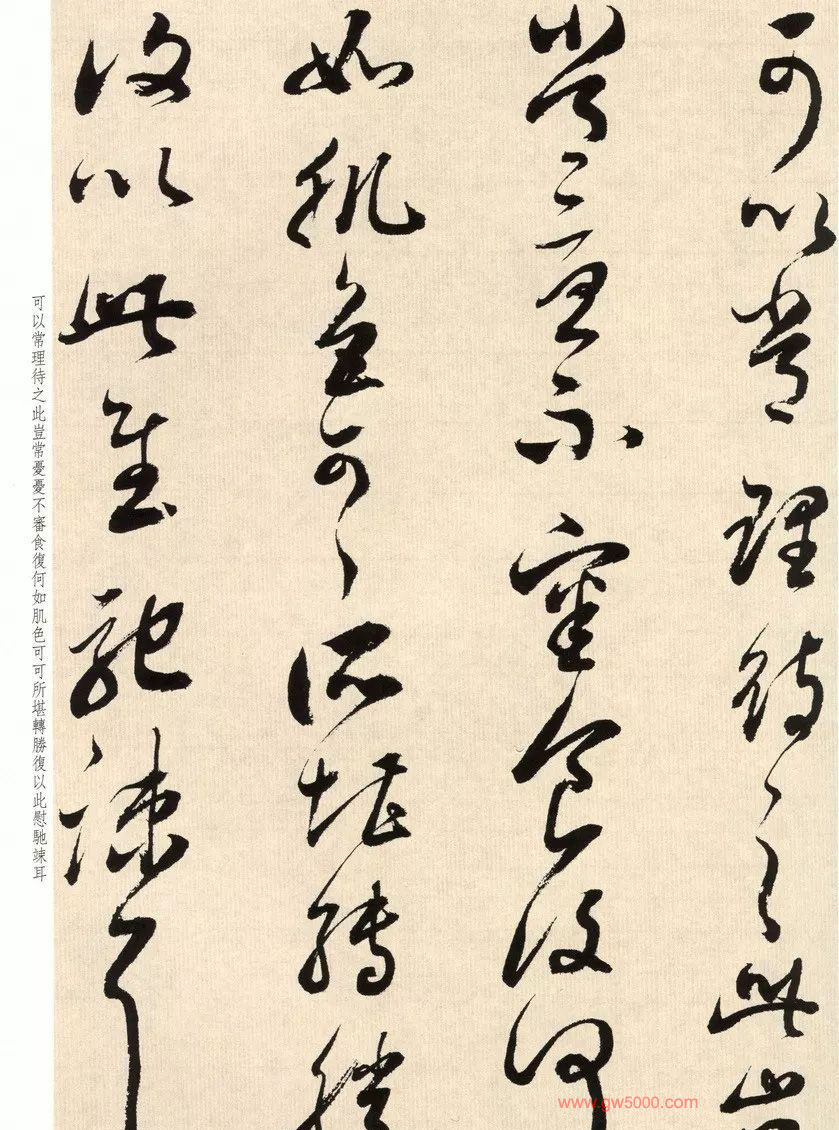 可以常理待之此豈
常憂憂不審食復何
如肌色可可所堪轉勝
復以此慰馳竦耳
可以常理待之此豈常憂憂不審食復何如肌色可可所堪轉勝復以此慰馳竦耳
www.gw5000.com